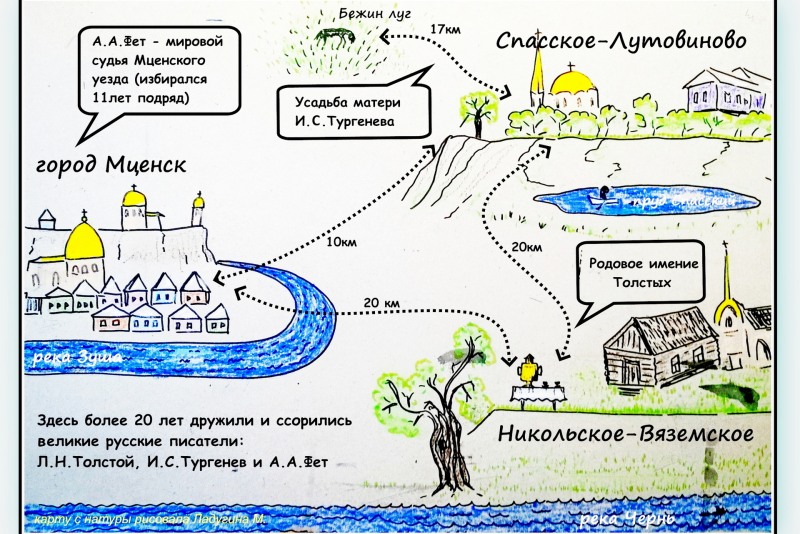 Бежин луг
17км
Спасское-Лутовиново
А.А.Фет - мировой
судья Мценского
уезда (избирался
11лет подряд)
Усадьба матери
И.С.Тургенева
город Мценск
пруд Спасский
10км
20км
Родовое имение
Толстых
20 км
река Зуша
Здесь более 20 лет дружили и ссорились
великие русские писатели:
Л.Н.Толстой, И.С.Тургенев и А.А.Фет
Никольское-Вяземское
карту с натуры рисовала Ладугина М.
река Чернь